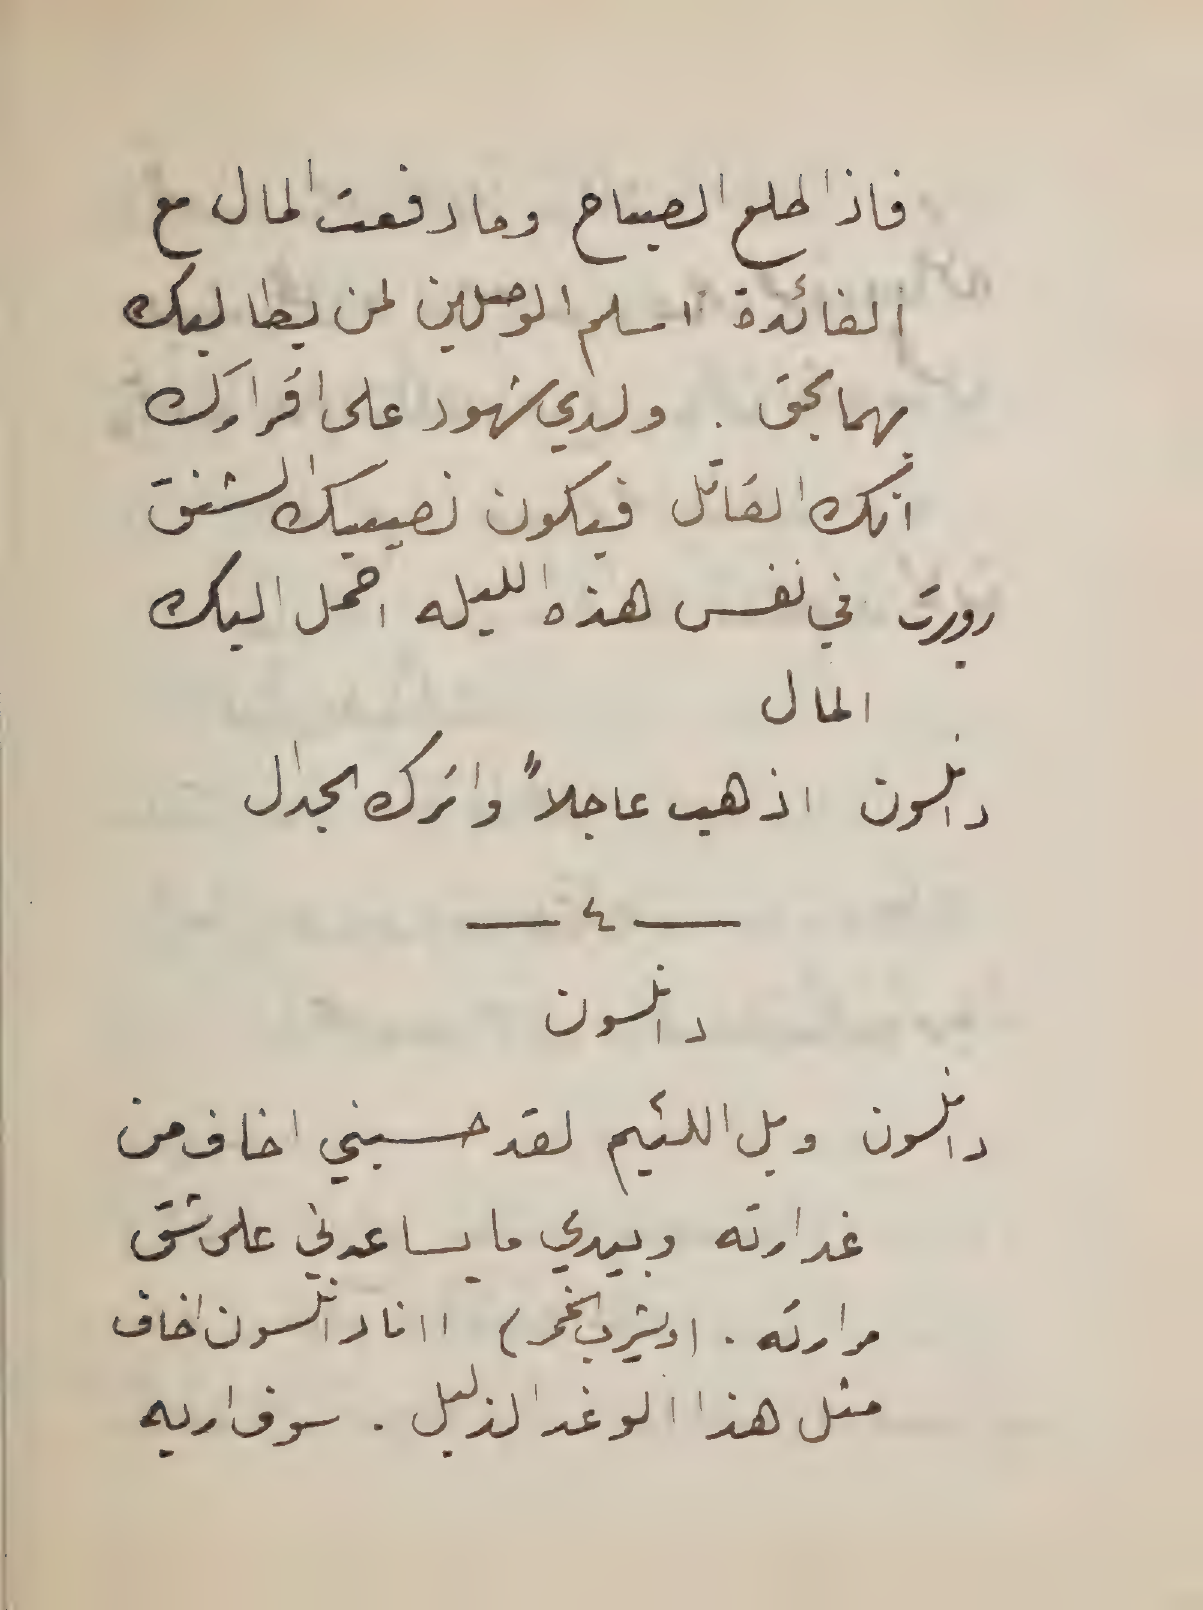 فاذا طلع الصباح وما دفعت المال مع
الفائدة اسلم الوصلين لمن يطالبك
بهما بحق . ولدي شهود على اقرارك
انك القاتل فيكون نصيبك الشنق
روبرت في نفس هذه الليله احمل اليك
المال
دانلسون اذهب عاجلاً واترك الجدال
— ٤ —
دانلسون
دانلسون ويل اللئيم لقد حسبني اخاف من
غدارته وبيدي ما يساعدني على شق
مرارته . (ويشرب الخمر) اانا دانلسون اخاف
مثل هذا الوغد الذليل . سوف اريه